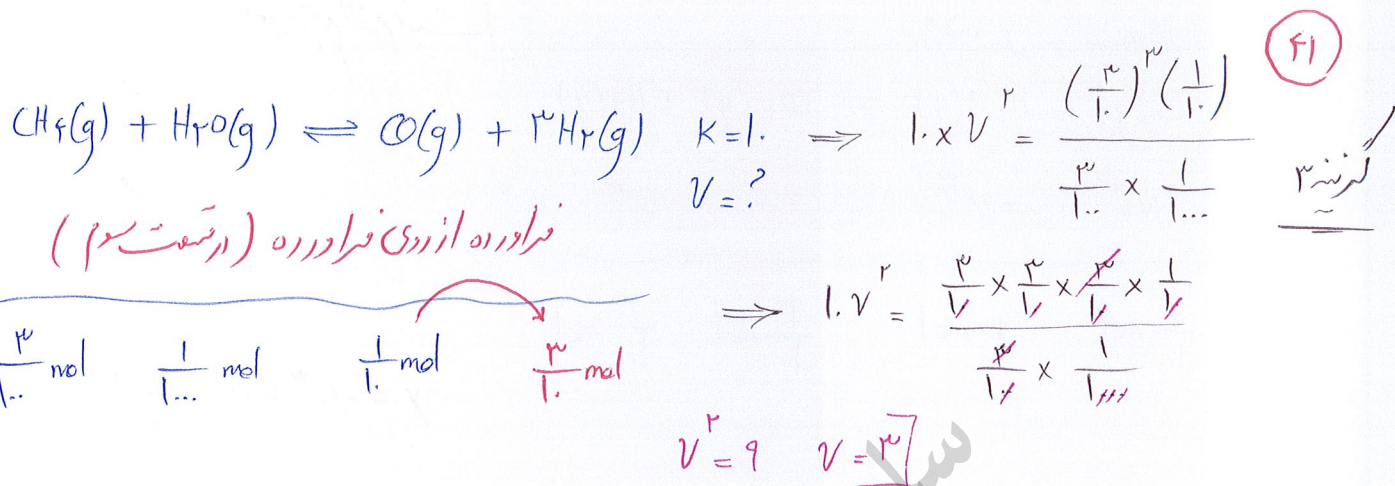 ۴۱
CH۴(g) + H۲O(g) ⇌ CO(g) + ۳H۲(g) K=۱۰ ⇒ ۱۰ × V^۲ = (۳/۱۰)^۳ (۱/۱۰) / (۳/۱۰۰ × ۱/۱۰۰۰)
V=?
گزینه ۳
فرآورده از روی فرآورده (در قسمت سوم)
۳/۱۰۰ mol ۱/۱۰۰۰ mol ۱/۱۰ mol ۳/۱۰ mol
⇒ ۱۰V^۲ = (۳/۱۰ × ۳/۱۰ × ۳/۱۰ × ۱/۱۰) / (۳/۱۰۰ × ۱/۱۰۰۰)
V^۲ = ۹ V = ۳